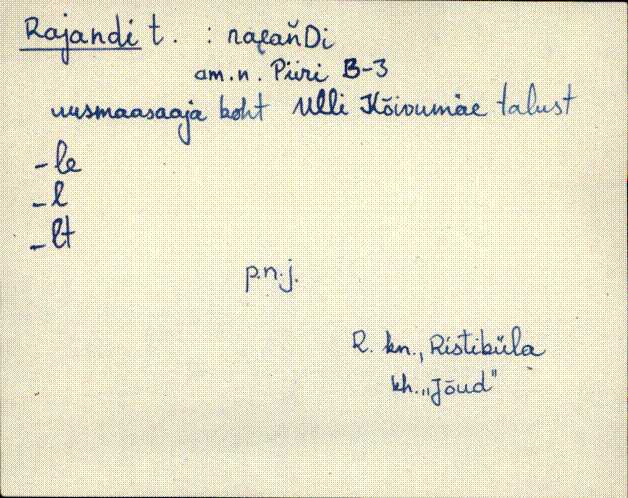 Rajandi t. : raꞓaňDi
am.n. Piiri B-3
uusmaasaaja koht Ulli Kõivumäe talust
-le
-l
-lt
p.n.j.
R. kn., Ristiküla
kh. „Jõud"